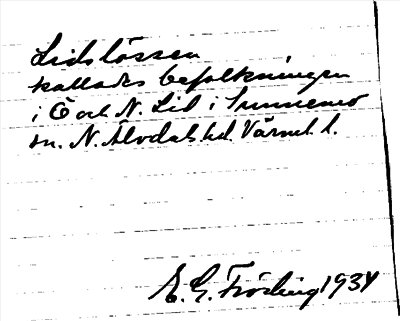 Lidstössen
kallades befolkningen
i Ö och N. Lid i Sunnemo
sn. N. Älvdals hd. Värml. l.
E. G. Fröding 1934